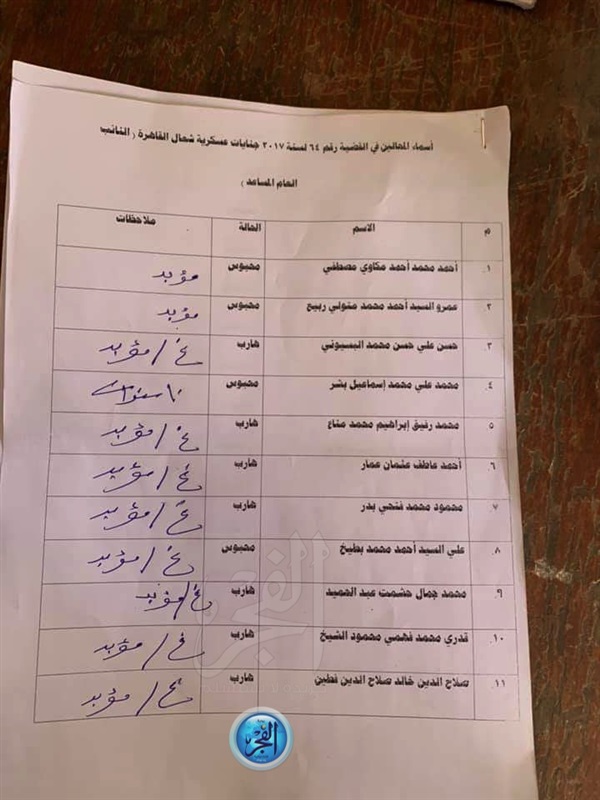 أسماء المحالين في القضية رقم ٦٤ لسنة ٢٠١٧ جنايات عسكرية شمال القاهرة ( النائب
العام المساعد )
م الاسم الحالة ملاحظات
١. أحمد محمد أحمد مكاوي مصطفي محبوس مؤبد
٢ عمرو السيد أحمد محمد متولي ربيع محبوس مؤبد
٣ حسن علي حسن محمد البسيوني هارب غ / مؤبد
٤. محمد علي محمد إسماعيل بشر محبوس سنوات
٥ محمد رفيق إبراهيم محمد مناع هارب غ / مؤبد
٦. أحمد عاطف عثمان عمار هارب غ / مؤبد
٧. محمود محمد فتحي بدر هارب غ / مؤبد
٨. علي السيد أحمد محمد بطيخ محبوس غ / مؤبد
٩. محمد جمال حشمت عبد الحميد هارب غ / مؤبد
١٠. قدري محمد فهمي محمود الشيخ هارب غ / مؤبد
١١. صلاح الدين خالد صلاح الدين فطين هارب غ / مؤبد
الفجر
الفجر